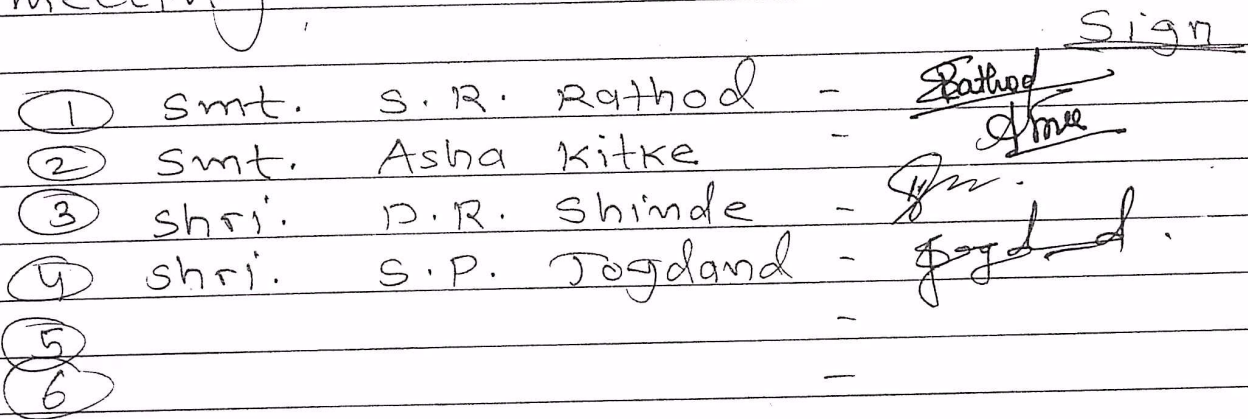 meeting
Sign
1 Smt. S. R. Rathod - SRathod
2 Smt. Asha Kitke -
3 Shri. D. R. Shinde -
4 Shri. S. P. Jogdand - Jogdand.
5 -
6 -